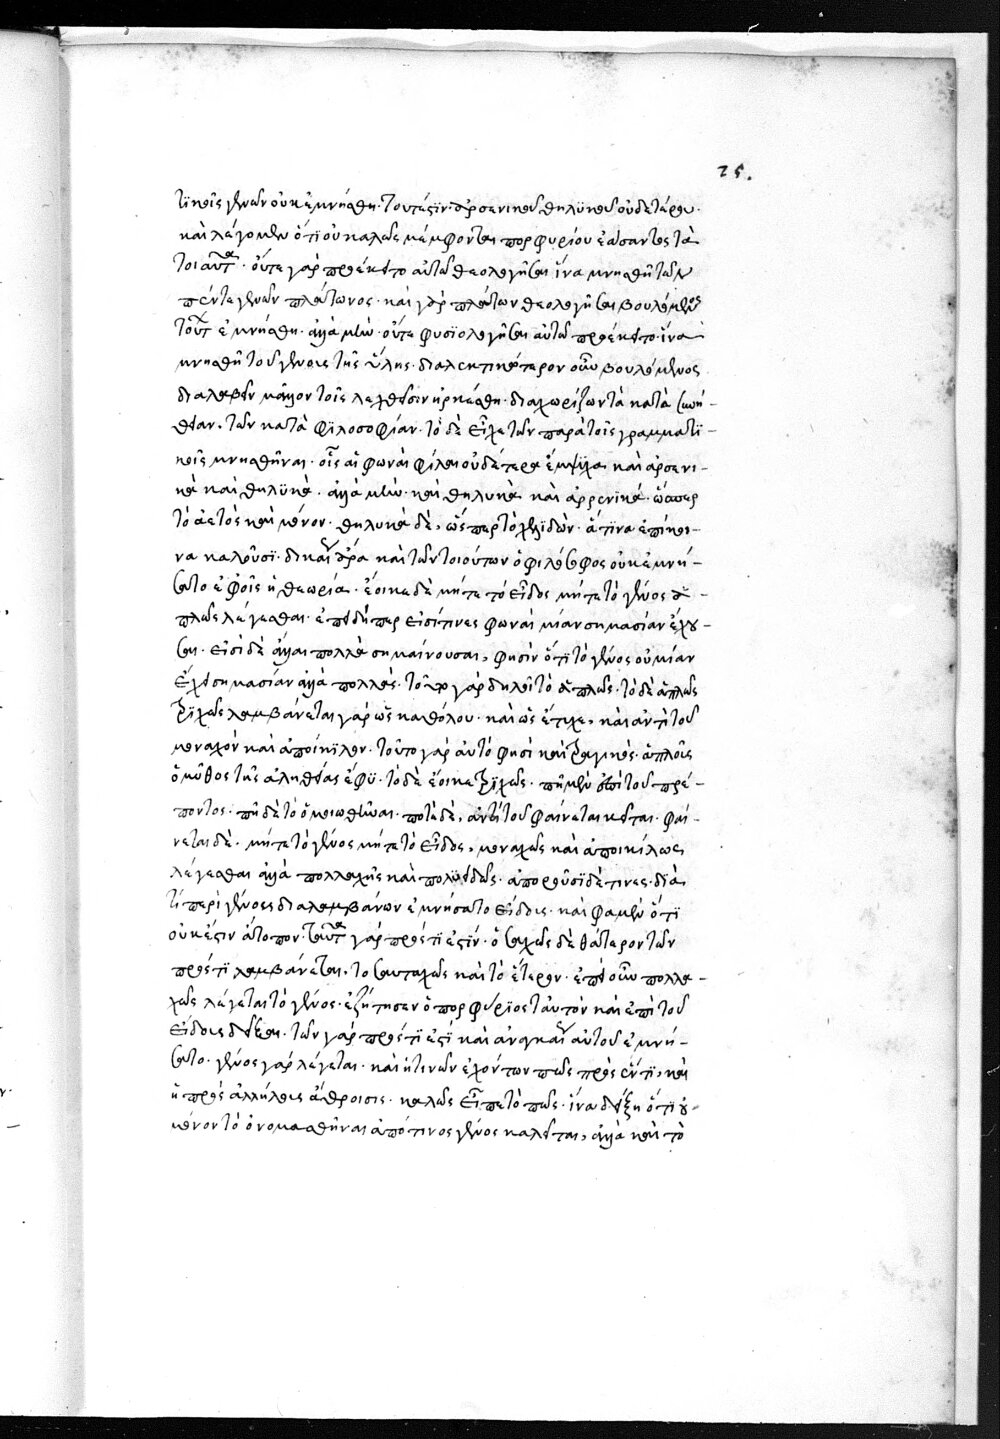 25.
τϊκοῖς γενῶν οὐκ ἐμνήσθη· τουτέστϊν· ἀρσενικοῦ θηλυκοῦ οὐδετέρου·
καὶ λέγομεν ὅτϊ οὐ καλῶς μέμφονται πορφυρίου ἐάσαντος τὰ
τοιαῦτα· οὔτε γὰρ προέκειτο αὐτῶ θεολογῆσαι ἵνα μνησθῆ τῶν
πέντε γενῶν πλάτωνος· καὶ γὰρ πλάτων θεολογῆσαι βουλόμενος
τούτων ἐμνήσθη· ἀλλὰ μὴν· οὔτε φυσϊολογῆσαι αὐτῶ προέκειτο· ἵνα
μνησθῆ τοῦ γένους τῆς ὕλης· διαλεκτικώτερον οὖν βουλόμενος
διαλαβεῖν μᾶλλον τοῖς λεχθεῖσιν ἠρκέσθη· διαχωρίζων τὰ κατὰ συνή-
θειαν, τῶν κατὰ φϊλοσοφίαν· τὸ δὲ εἶχε τῶν παρὰ τοῖς γραμματϊ-
κοῖς μνησθῆναι· οἷς αἱ φωναὶ φίλαι οὐδέτερα ἔμψϋχα καὶ ἀρσενι-
κὰ καὶ θηλϋκὰ· ἀλλὰ μὴν· καὶ θηλυκὰ καὶ ἀρρενϊκὰ· ὥσπερ
τὸ ἀετὸς καὶ μόνον· θηλυκὰ δὲ, ὥσπερ τὸ χελϊδὼν· ἅτϊνα ἐπίκοι-
να καλοῦσϊ· δικαίως ἄρα καὶ τῶν τοιούτων ὁ φιλόσοφος οὐκ ἐμνή-
σατο ἐφ οἷς ἡ θεωρία· ἔοικε δὲ μήτε τὸ εἶδος μήτε τὸ γένος ἁ-
πλῶς λέγεσθαι· ἐπειδήπερ εἰσί τινες φωναὶ μίαν σημασίαν ἔχου-
σαι· εἰσὶ δὲ ἄλλαι πολλὰ σημαίνουσαι, φησὶν ὅτϊ τὸ γένος οὐ μίαν
ἔχει σημασίαν ἀλλὰ πολλὰς· τοῦτο γὰρ δηλοῖ τὸ ἁπλῶς· τὸ δὲ ἁπλῶς
τρϊχῶς λαμβάνεται γὰρ ὡς καθόλου· καὶ ὡς ἔτυχε, καὶ ἀντὶ τοῦ
μοναχὸν καὶ ἀποίκϊλον· τοῦτο γὰρ αὐτό φησι καὶ τραγικὸς· ἁπλοῦς
ὁ μῦθος τῆς ἀληθείας ἔφϋ· τὸ δὲ ἔοικε τρϊχῶς· πῆ μὲν ἐπὶ τοῦ πρέ-
ποντος· πῆ δὲ τὸ ὁμοιωθῆναι· ποτὲ δὲ, ἀντὶ τοῦ φαίνεται κεῖται· φαί-
νεται δὲ· μήτε τὸ γένος μήτε τὸ εἶδος, μοναχῶς καὶ ἀποικίλως
λέγεσθαι ἀλλὰ πολλαχῆς καὶ πολυειδῶς· ἀποροῦσϊ δέ τινες· διὰ
τί περὶ γένους διαλαμβάνων ἐμνήσατο εἴδους· καὶ φαμὲν ὅτϊ
οὐκ ἔστιν ἄτοπον· ταῦτα γὰρ πρός τϊ ἐστϊν· ὁσαχῶς δὲ θάτερον τῶν
πρός τϊ λαμβάνεται, τοσαυταχῶς καὶ τὸ ἕτερον· ἐπεὶ οὖν πολλα-
χῶς λέγεται τὸ γένος· ἐζήτησεν ὁ πορφύρϊος ταυτὸν καὶ ἐπὶ τοῦ
εἴδους δεῖξαι· τῶν γὰρ πρός τϊ ἐστϊ καὶ ἀναγκαίως αὐτοῦ ἐμνή-
σατο· γένος γὰρ λέγεται· καὶ ἡ τινῶν ἐχόντων πως πρὸς ἕν τϊ, καὶ
ἡ πρὸς ἀλλήλους ἄθροισις· καλῶς εἶπε τό πως· ἵνα δείξη ὅτϊ οὐ
μόνον τὸ ὀνομασθῆναι ἀπό τινος γένος καλεῖται, ἀλλὰ καὶ τὸ